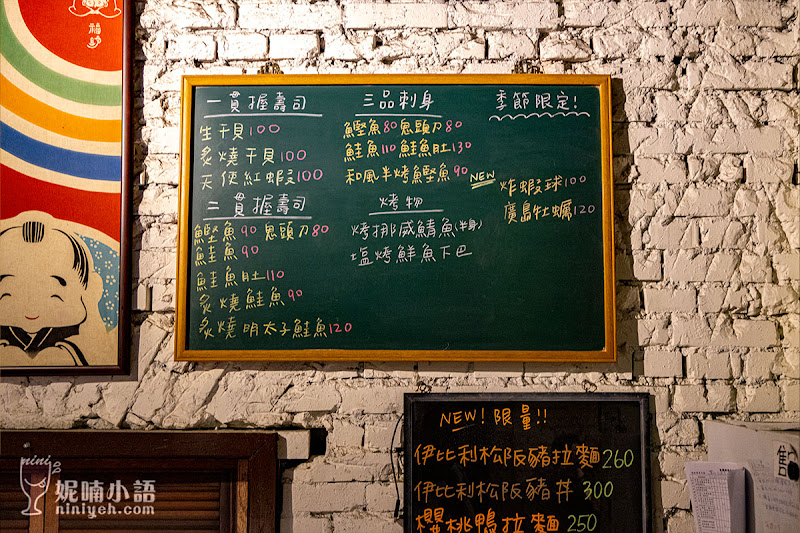 一貫握壽司
生干貝100
炙燒干貝100
天使紅蝦100
二貫握壽司
鰹魚90 鬼頭刀80
鮭魚90
鮭魚肚110
炙燒鮭魚90
炙燒明太子鮭魚120
三品刺身
鰹魚80 鬼頭刀80
鮭魚110 鮭魚肚130
和風半烤鰹魚90
烤物
烤挪威鯖魚(半身)
塩烤鮮魚下巴
季節限定!
NEW
炸蝦球100
廣島牡蠣120
NEW!限量!!
伊比利松阪豬拉麵260
伊比利松阪豬丼300
櫻桃鴨拉麵250
nini
妮喃小語
niniyeh.com